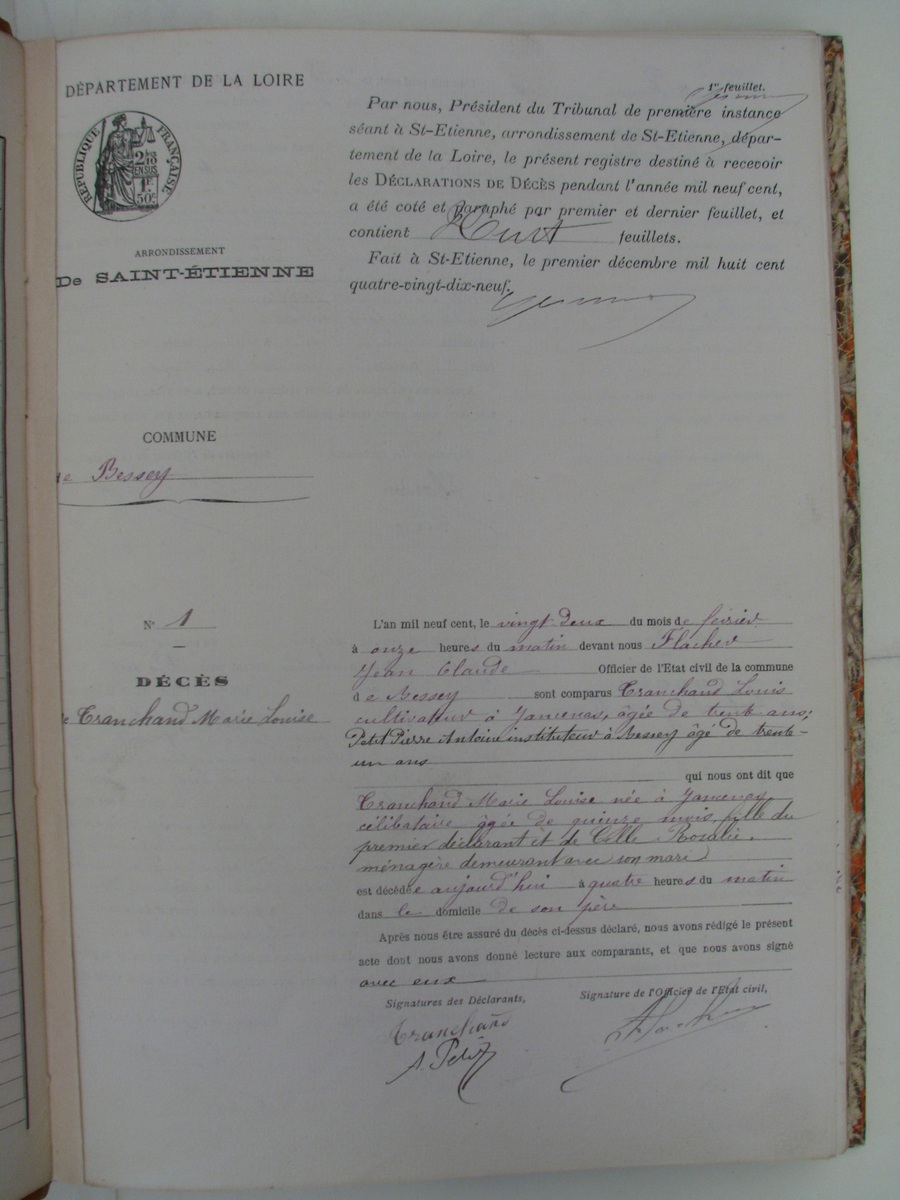 DÉPARTEMENT DE LA LOIRE
RÉPUBLIQUE FRANÇAISE
2/10
EN SUS
1F
50c
ARRONDISSEMENT
De SAINT-ÉTIENNE
COMMUNE
de Bessey
1er feuillet.
Par nous, Président du Tribunal de première instance
séant à St-Etienne, arrondissement de St-Etienne, dépar-
tement de la Loire, le présent registre destiné à recevoir
les DÉCLARATIONS DE DÉCÈS pendant l'année mil neuf cent,
a été coté et paraphé par premier et dernier feuillet, et
contient Huit feuillets.
Fait à St-Etienne, le premier décembre mil huit cent
quatre-vingt-dix-neuf.
N° 1
DÉCÈS
de Tranchand Marie Louise
L'an mil neuf cent, le vingt deux du mois de février
à onze heures du matin devant nous Flacher
Jean Claude Officier de l'Etat civil de la commune
de Bessey sont comparus Tranchand Louis
cultivateur à Jamenas, âgée de trente ans;
Petit Pierre Antoine instituteur à Bessey âgé de trente-
un ans
qui nous ont dit que
Tranchand Marie Louise née à Jamenas
célibataire âgée de quinze mois, fille du
premier déclarant et de Celle Rosalie,
ménagère demeurant avec son mari
est décédée aujourd'hui à quatre heures du matin
dans le domicile de son père
Après nous être assuré du décès ci-dessus déclaré, nous avons rédigé le présent
acte dont nous avons donné lecture aux comparants, et que nous avons signé
avec eux
Signatures des Déclarants,
Signature de l'Officier de l'Etat civil,
Tranchand
A. Petit
Flacher